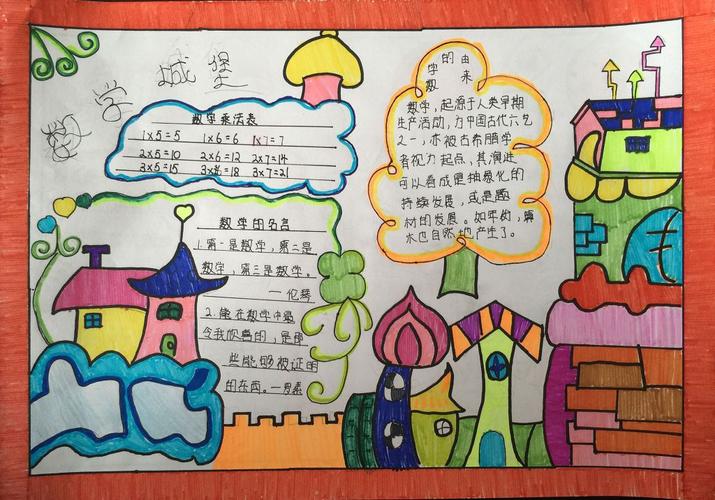 数学城堡
数学乘法表
1×5=5 1×6=6 1×7=7
2×5=10 2×6=12 2×7=14
3×5=15 3×6=18 3×7=21
数学的名言
1.第一是数学，第二是
数学，第三是数学。
一伦琴
2.能在数学中最
令我欣喜的，是那
些能够被证明
的东西。一罗素
数学的由来
数学，起源于人类早期
生产活动，为中国古代六艺
之一，亦被古希腊学
者视为起点，其演进
可以看成是抽象化的
持续发展，或是题
材的发展。如年岁，算
术也自然地产生了。